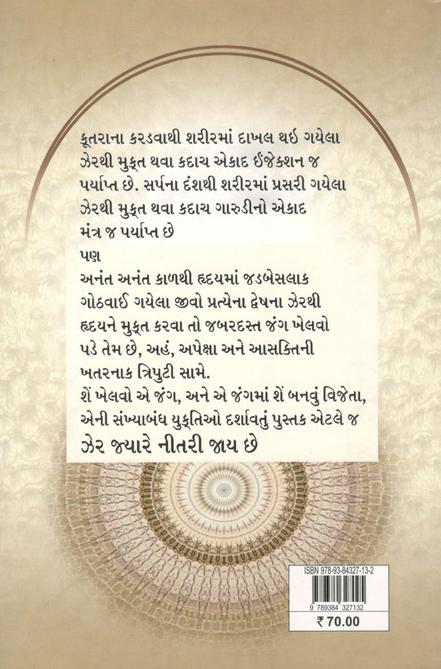 કૂતરાના કરડવાથી શરીરમાં દાખલ થઇ ગયેલા
ઝેરથી મુક્ત થવા કદાચ એકાદ ઈંજેક્શન જ
પર્યાપ્ત છે. સર્પના દંશથી શરીરમાં પ્રસરી ગયેલા
ઝેરથી મુક્ત થવા કદાચ ગારુડીનો એકાદ
મંત્ર જ પર્યાપ્ત છે
પણ
અનંત અનંત કાળથી હૃદયમાં જડબેસલાક
ગોઠવાઈ ગયેલા જીવો પ્રત્યેના દ્વેષના ઝેરથી
હૃદયને મુક્ત કરવા તો જબરદસ્ત જંગ ખેલવો
પડે તેમ છે, અહં, અપેક્ષા અને આસક્તિની
ખતરનાક ત્રિપુટી સામે.
શેં ખેલવો એ જંગ, અને એ જંગમાં શેં બનવું વિજેતા,
એની સંખ્યાબંધ યુક્તિઓ દર્શાવતું પુસ્તક એટલે જ
ઝેર જ્યારે નીતરી જાય છે
ISBN 978-93-84327-13-2
9 789384 327132
₹ 70.00